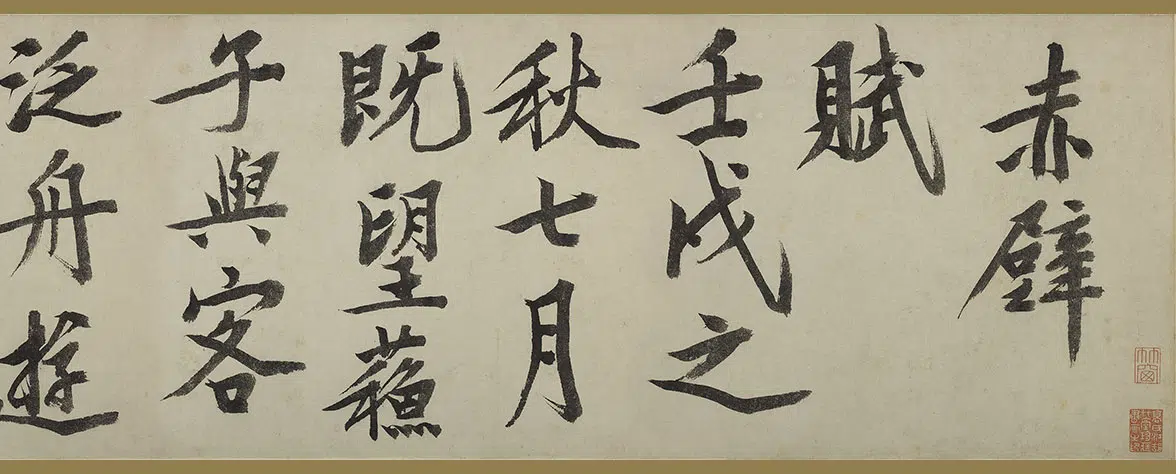 赤壁
賦
壬戌之
秋七月
既望蘓
子與客
泛舟遊